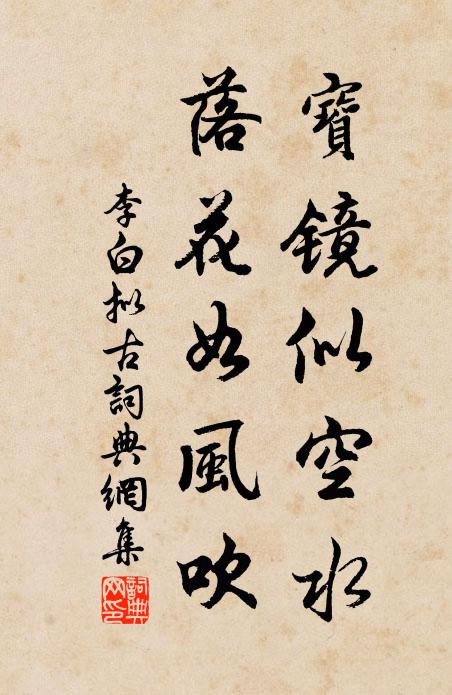 寶鏡似空水
落花如風吹
李白擬古詞典網集
詞典網印